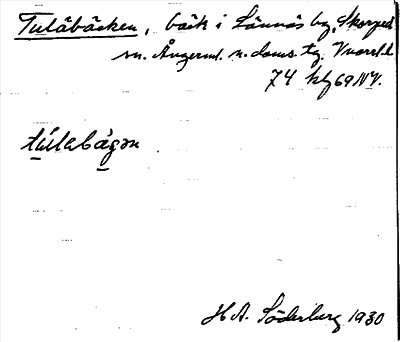 Tulåbäcken, bäck i Lännäs by, Skorped
sn. Ångerml. n. doms. tg. Vnorrl. l.
74 kbf 69 NV.
túlabägən
H A. Söderberg 1930